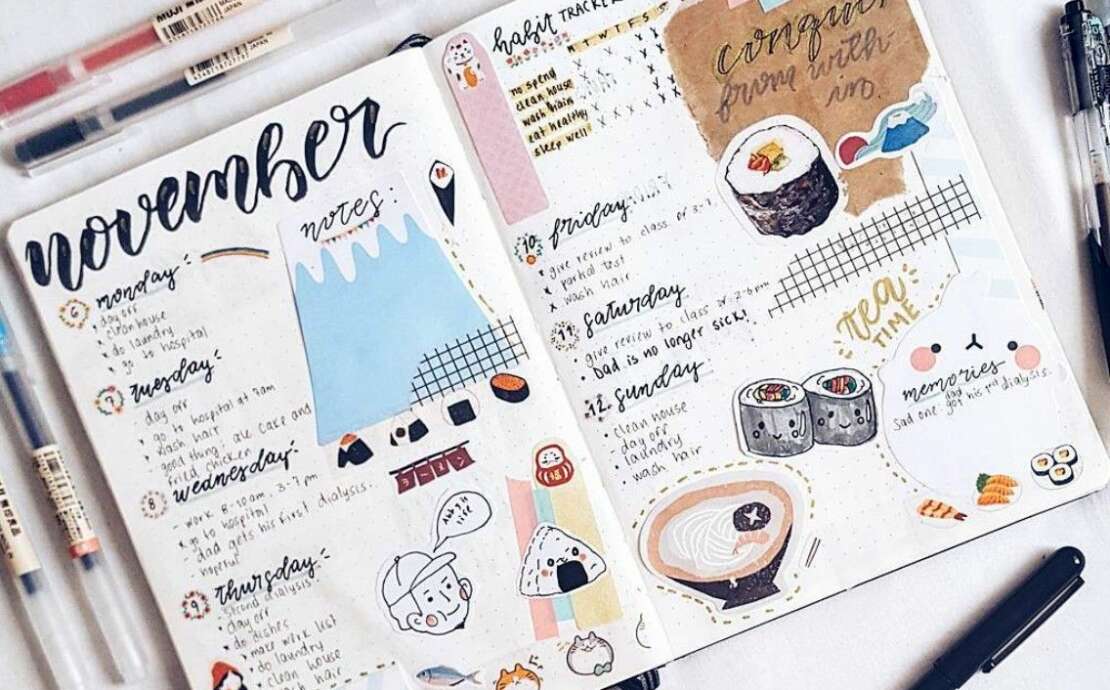 MUJI
JAPAN
JAPAN
november
notes:
6 monday
day off
clean house
do laundry
go to hospital
7 tuesday
day off
go to hospital at 7am
wash hair
good thing: ate cake and
fried chicken
8 wednesday
- work 8-10am, 3-7pm
go to hospital
dad gets his first dialysis.
hopeful
9 thursday
second dialysis
day off
do dishes
make work list
do laundry
clean house
wash hair
habit TRACKER
M T W T F S S
no spend
clean house
wash hair
eat healthy
sleep well
conquer
from with-
in.
10 friday
give review to class
partial test
wash hair
11 saturday
give review to class
Dad is no longer sick!
12. sunday
clean house
- day off
laundry
wash hair
tea
TIME
memories
Sad one. dad got his 1st dialysis.